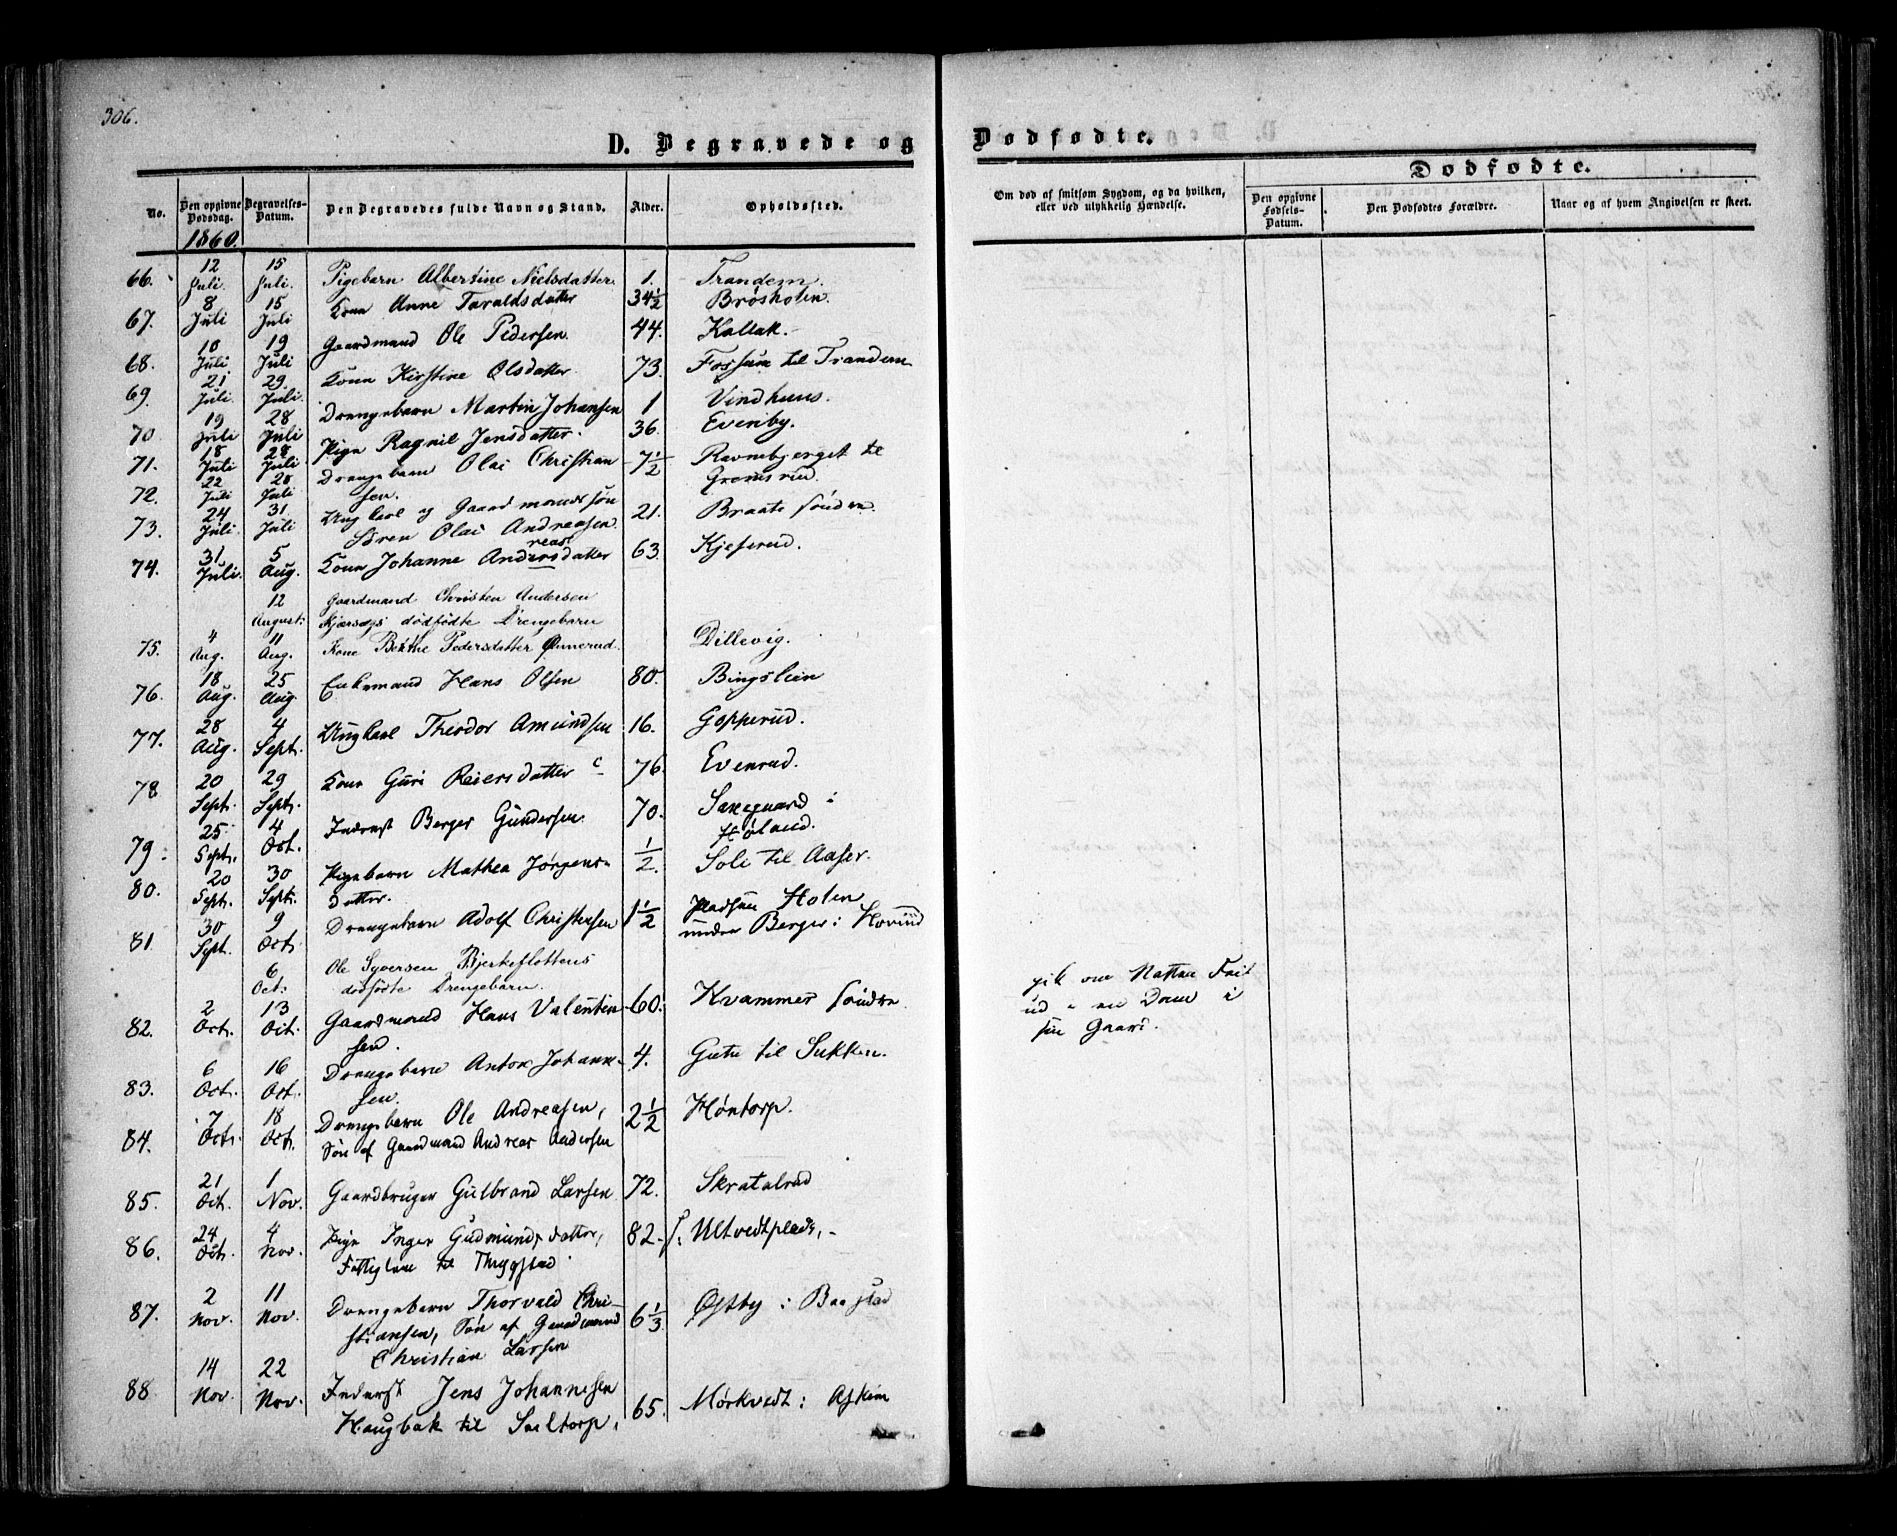 306.
D. Begravede og Dødfødte.
Dødfødte.
No. Den opgivne Dødsdag. Begravelses-Datum. Den Begravedes fulde Navn og Stand. Alder. Opholdssted. Om død af smitsom Sygdom, og da hvilken, eller ved ulykkelig Hændelse. Den opgivne Fødsels-Datum. Den Dødfødtes Forældre. Naar og af hvem Angivelsen er skeet.
1860.
66. 12 Juli. 15 Juli. Pigebarn Albertine Nielsdatter. 1. Trandem.
67. 8 Juli 15 Juli Kone Anne Taraldsdatter 34½ Brøsholen.
68. 10 Juli. 19 Juli Gaardmand Ole Pedersen. 44. Kallak.
69. 21 Juli 29. Juli. Kone Kirstine Olsdatter. 73. Fossum til Trandem
70. 19 Juli 28 Juli Drengebarn Martin Johansen 1 Vindhuus.
71. 18 Juli 28 Juli Pige Ragnil Jensdatter. 36. Evenby.
72. 22 Juli 28 Juli Drengebarn Olai Christian
sen. 7½ Ravnebjerget til
Gremsrud.
73. 24 Juli. 31 Juli Ungkarl og Gaardmandssøn
Søren Olai Andreasen. 21. Braate søndre.
74. 31 Juli. 5 Aug. Kone Johanne Andersdatter 63. Kjeserud.
reas
12 August: Gaardmand Christen Andersen
Kjærsøgs dødfødte Drengebarn
75. 4 Aug. 11 Aug. Kone Berthe Pedersdatter Dillevig.
76. 18 Aug. 25 Aug Enkemand Hans Olsen 80. Bingslein
77. 28 Aug. 4 Sept. Ungkarl Theodor Amundsen 16. Gopperud.
78 20 Sept. 29 Sept. Kone Guri Reiersdatter 76. Evenrud.
79. 25 Sept. 4 Oct. Inderst Berger Gundersen. 70. i
Høland.
80. 20 Sept. 30 Sept. Pigebarn Mathea Jørgens-
datter. ½. Soli til Aaser.
81 30 Sept. 9 Oct. Drengebarn Adolf Christensen 1½ Pladsen Holen
under Berger i Hovind
6 Oct: Ole Syversen Bjerkeflottens
dødfødte Drengebarn.
82. 2 Oct. 13 Oct. Gaardmand Hans Valentin-
sen. 60. Kvammes søndre gik om Natten
ud i en Dam i
sin Gaard.
83. 6 Oct. 16 Oct. Drengebarn Anton Johanne-
sen. 4. til Sukken.
84. 7 Oct. 18 Oct. Drengebarn Ole Andreasen,
Søn af Gaardmand Andreas Andersen 2½ Høntorp.
85. 21 Oct. 1 Nov. Gaardbruger Gulbrand Larsen 72. Skratalrud
86. 24 Oct. 4 Nov. Pige Inger Gudmundsdatter,
Fattiglem til Thrygstad. 82. Ultvedtplads,
87. 2 Nov. 11 Nov. Drengebarn Thorvald Chri-
stiansen, Søn af Gaardmand
Christian Larsen 6⅓ Østby i Baastad
88. 14 Nov. 22 Nov. Inderst Jens Johannesen
Haugbak til Saltorp, 65. Mørkvedt i Askim